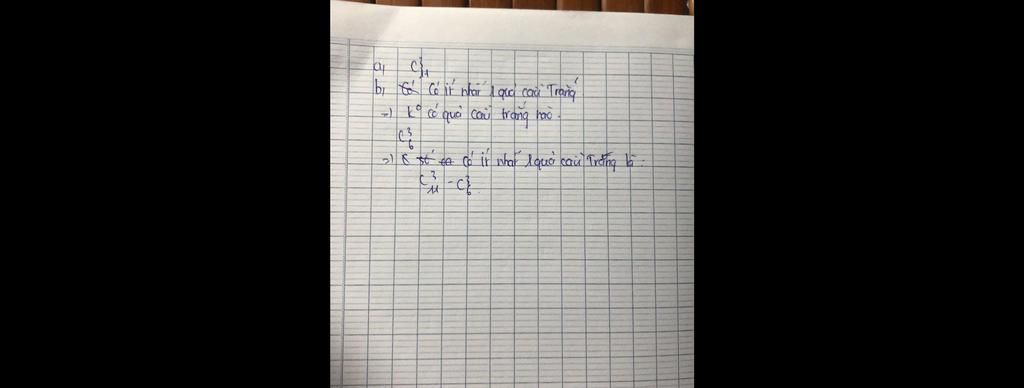 a, C³₁₁
b, Có Có ít nhất 1 quả cầu Trắng
=) k° có quả cầu trắng nào.
C³₆
=) K số có ít nhất 1 quả cầu Trắng là:
C³₁₁ - C³₆